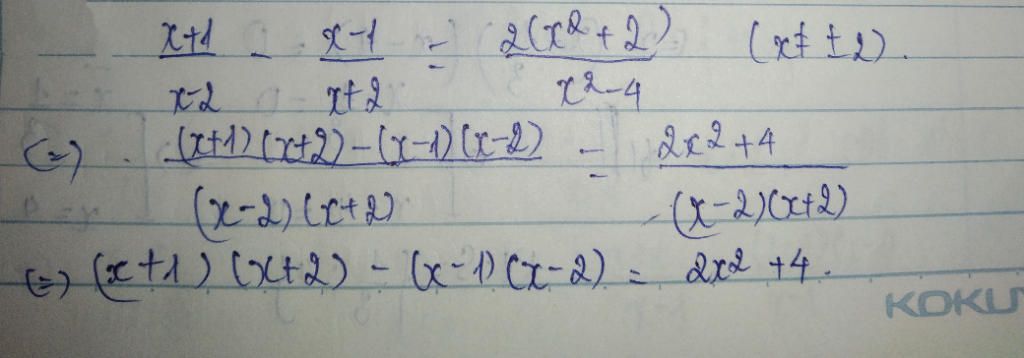 (x+1)/(x-2) - (x-1)/(x+2) = 2(x²+2)/(x²-4) (x ≠ ±2).
(=) . ((x+1)(x+2)-(x-1)(x-2))/((x-2)(x+2)) = (2x²+4)/((x-2)(x+2))
(=) (x+1)(x+2) - (x-1)(x-2) = 2x² +4.
KOKU